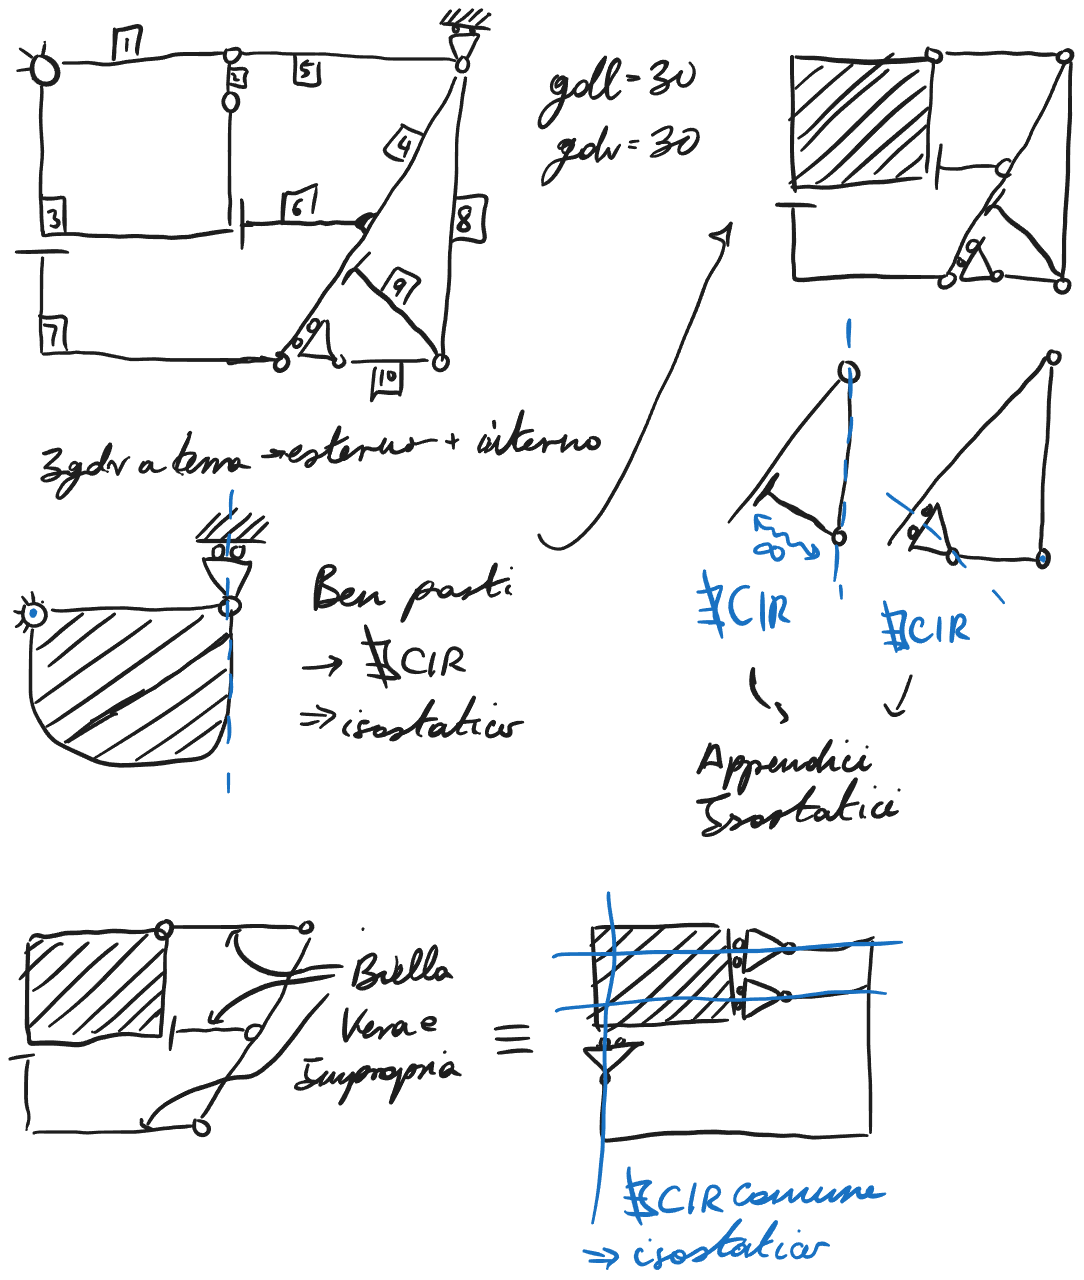 1
2
5
gdll = 30
gdv = 30
4
3
6
8
9
7
10
3 gdv a terra → esterno + interno
Ben posti
→ ∄ CIR
⇒ isostatica
∞
∄ CIR
∄ CIR
Appendici
Isostatice
Biella
Vera e
Impropria
≡
∄ CIR comune
⇒ isostatica